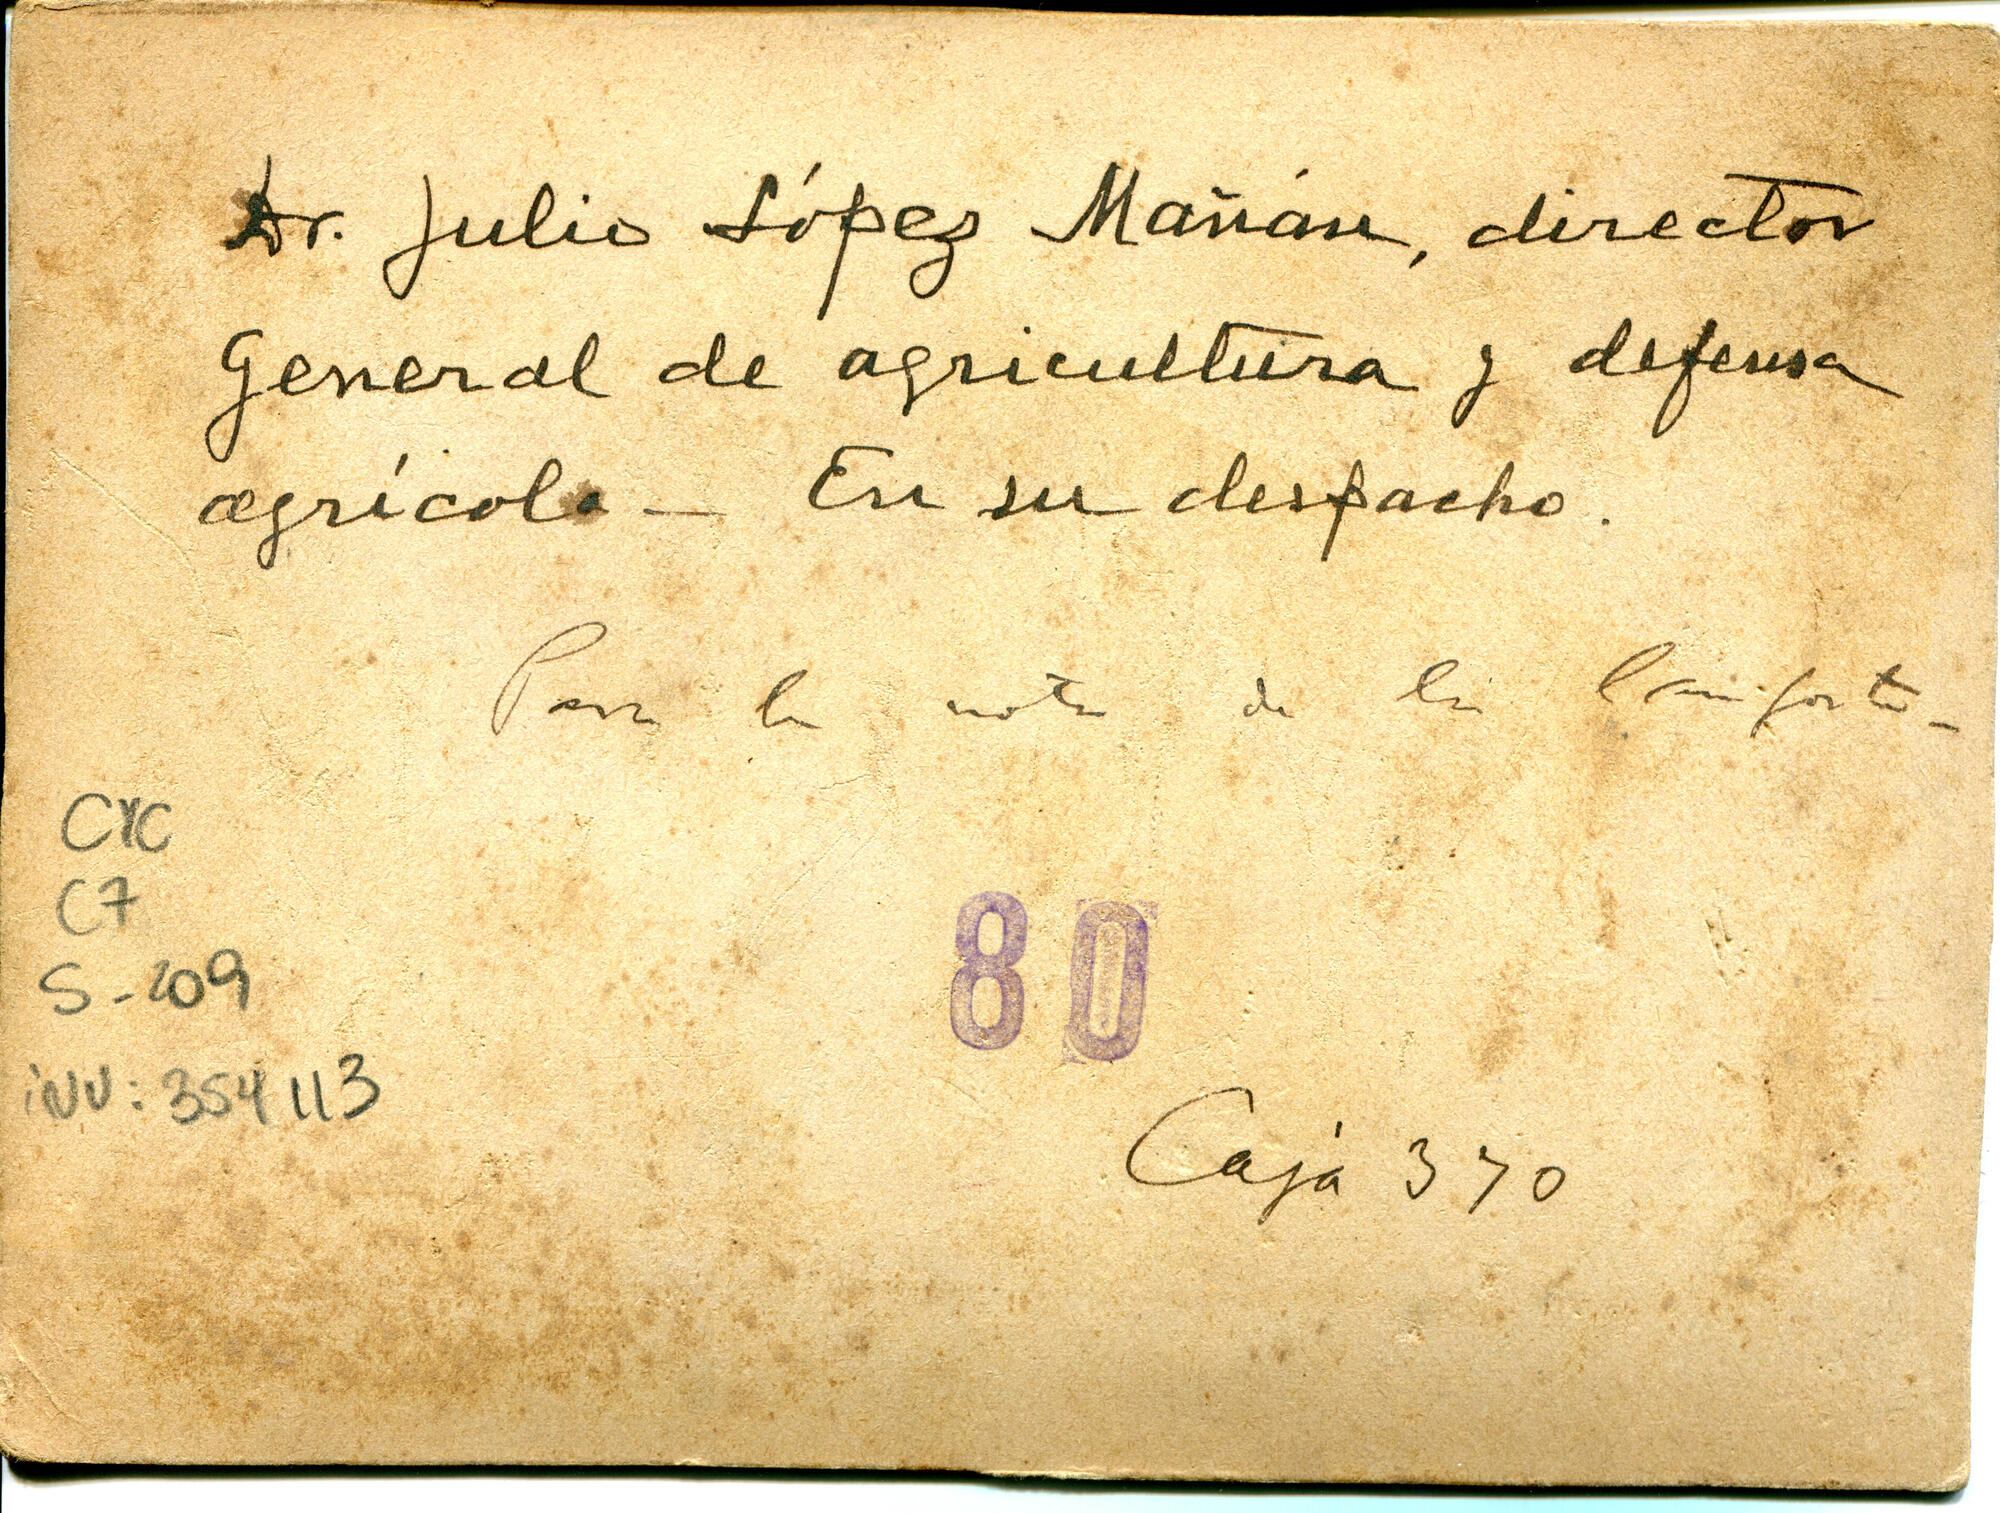 Dr. Julio López Mañán, director
General de agricultura y defensa
agrícola — En su despacho.
Para la nota de la
CYC
C7
S-209
80
iNV: 354113
Caja 370